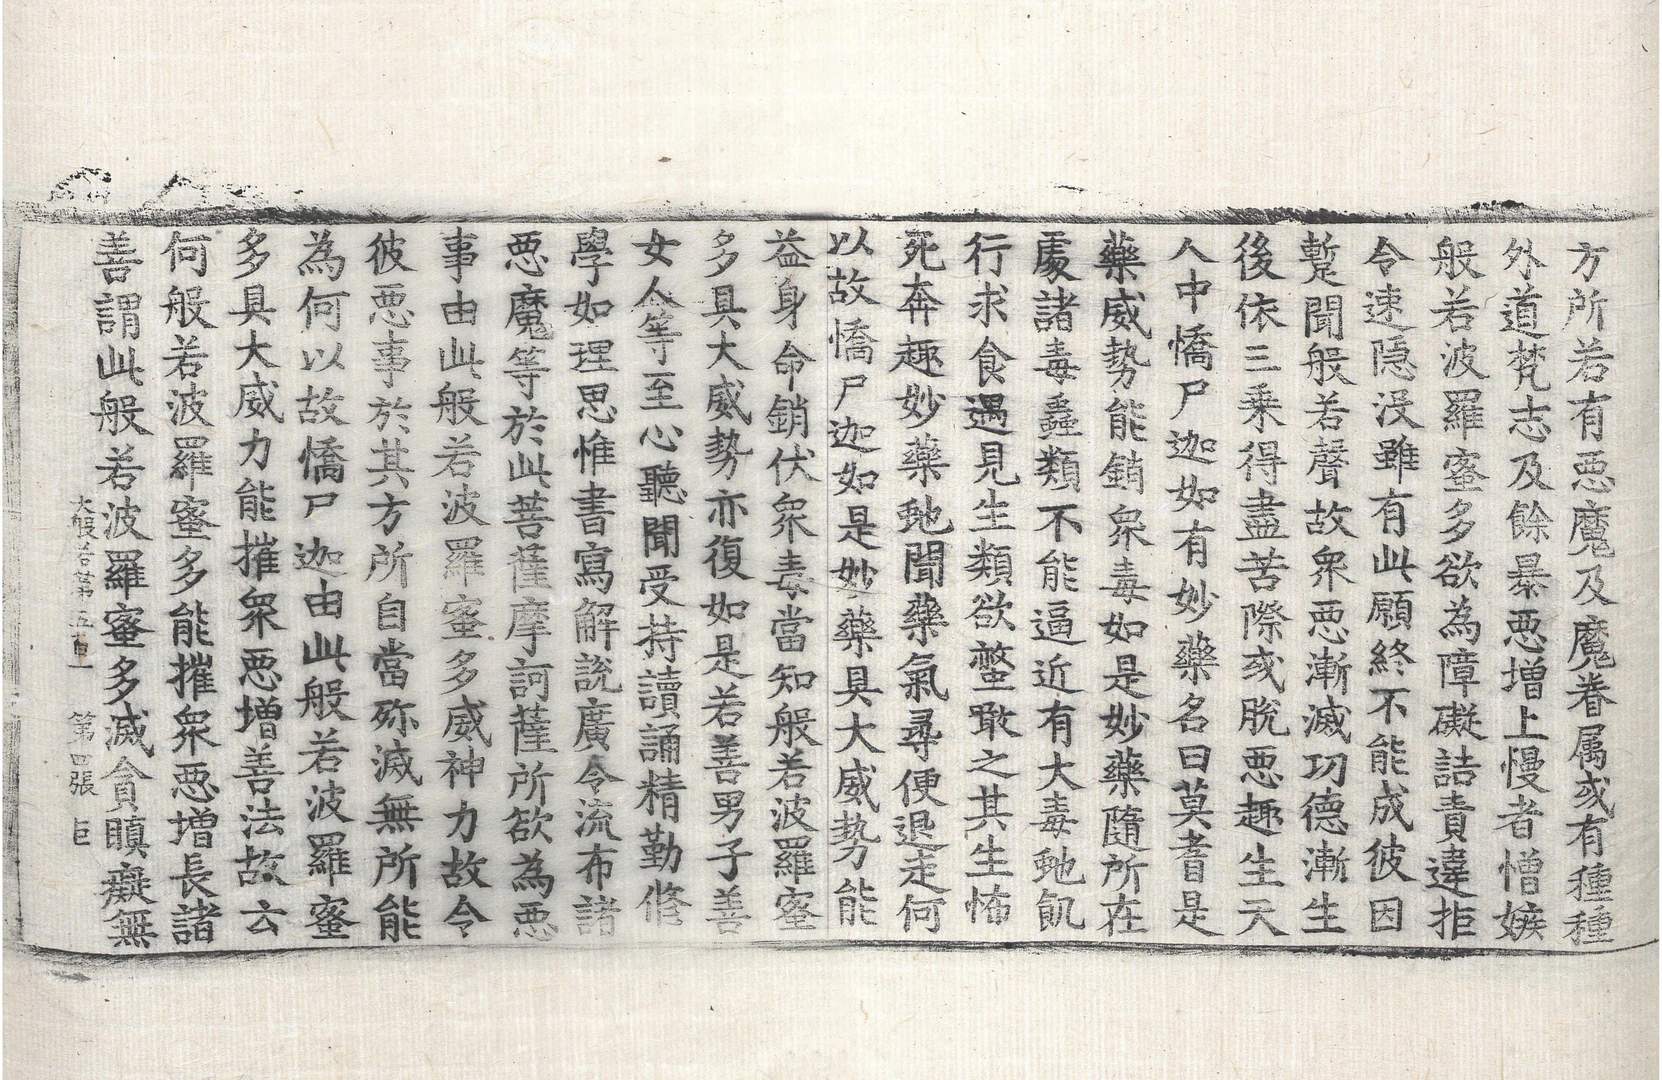 方所若有惡魔及魔眷属或有種種
外道梵志及餘暴惡增上慢者憎嫉
般若波羅蜜多欲為障礙詰責違拒
令速隱沒雖有此願終不能成彼因
蹔聞般若聲故衆惡漸滅功德漸生
後依三乘得盡苦際或脫惡趣生天
人中憍尸迦如有妙藥名曰莫耆是
藥威勢能銷衆毒如是妙藥隨所在
處諸毒蟲類不能逼近有大毒虵飢
行求食遇見生類欲螫敢之其生怖
死奔趣妙藥虵聞藥氣尋便退走何
以故憍尸迦如是妙藥具大威勢能
益身命銷伏衆毒當知般若波羅蜜
多具大威勢亦復如是若善男子善
女人等至心聽聞受持讀誦精勤修
學如理思惟書寫解說廣令流布諸
惡魔等於此菩薩摩訶薩所欲為惡
事由此般若波羅蜜多威神力故令
彼惡事於其方所自當殄滅無所能
為何以故憍尸迦由此般若波羅蜜
多具大威力能摧衆惡增善法故云
何般若波羅蜜多能摧衆惡增長諸
善謂此般若波羅蜜多滅貪瞋癡無
大般若第五百一 第四張 巨